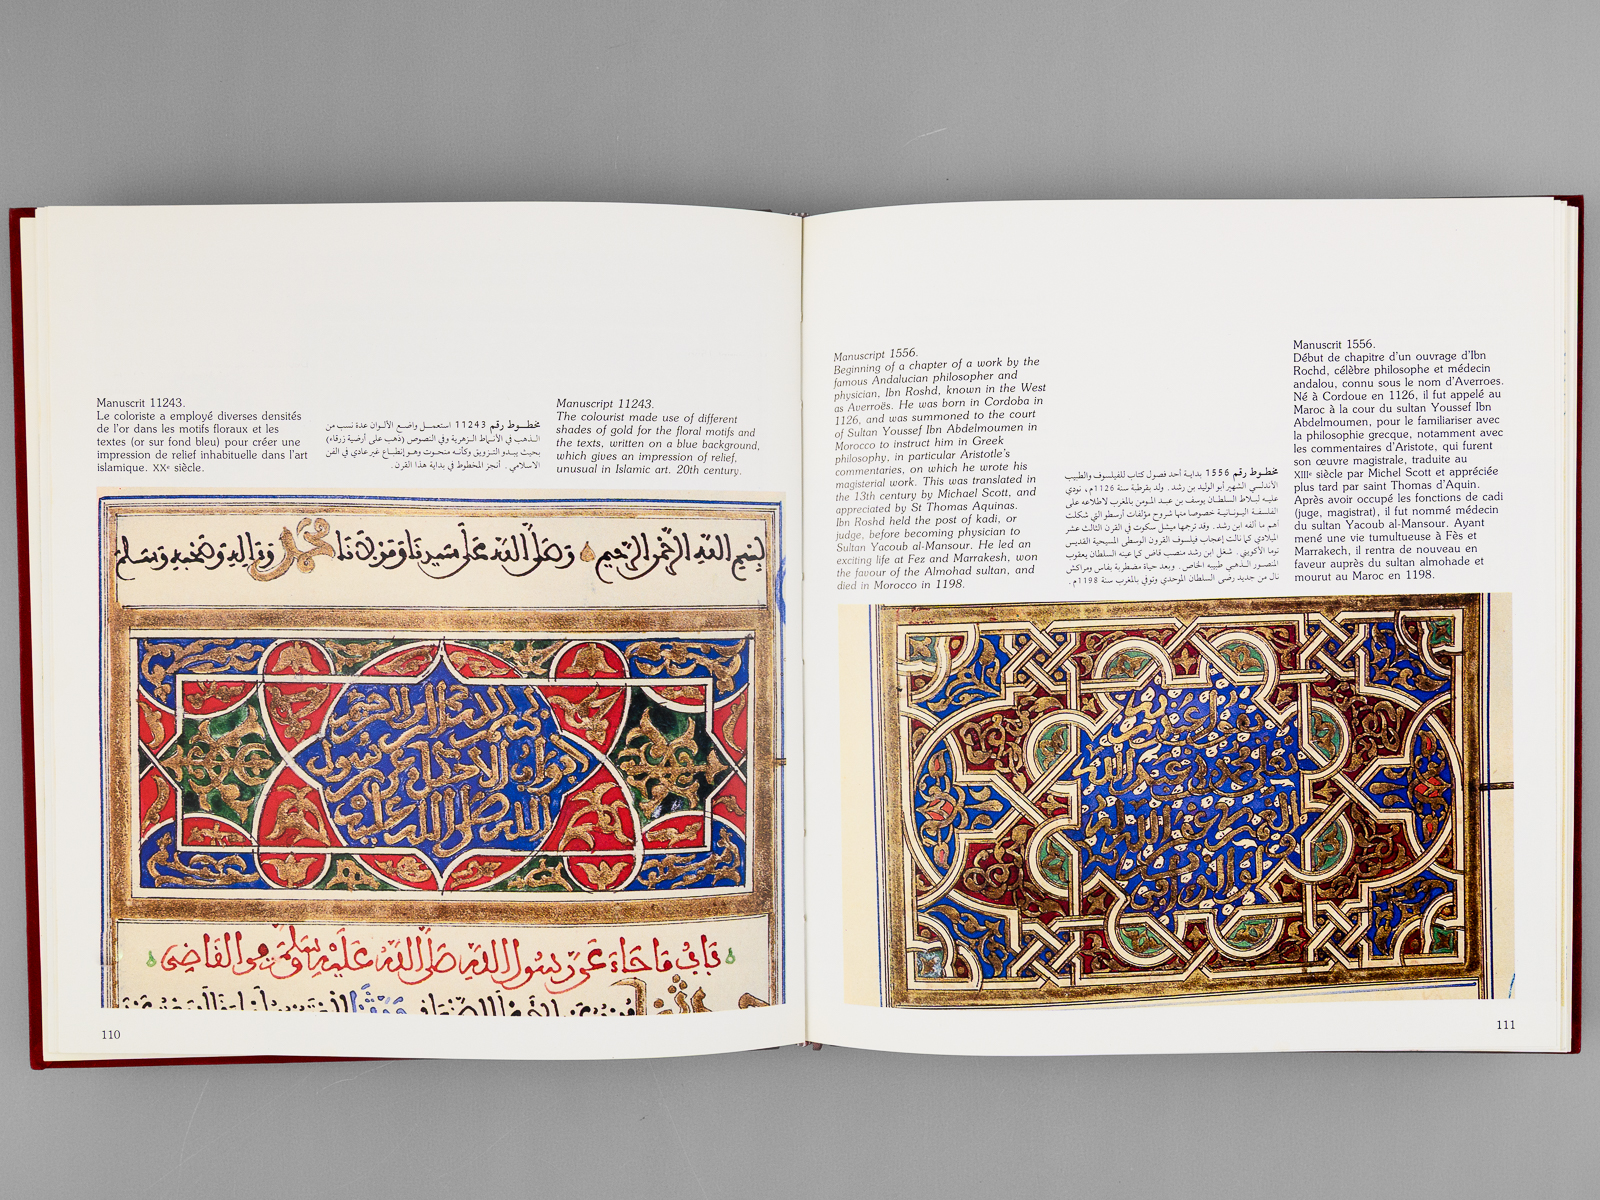 Manuscrit 11243.
Le coloriste a employé diverses densités
de l'or dans les motifs floraux et les
textes (or sur fond bleu) pour créer une
impression de relief inhabituelle dans l'art
islamique. XXe siècle.
مخطـوط رقم 11243 استعمـل واضـع الألـوان عدة نسب من
الـذهب في الأنماط الـزهرية وفي النصوص (ذهب على أرضية زرقاء)
بحيث يبـدو التزويق وكأنـه منحوت وهـو إنطبـاع غير عادي في الفن
الاسلامي . أنجز المخطوط في بداية هذا القرن .
Manuscript 11243.
The colourist made use of different
shades of gold for the floral motifs and
the texts, written on a blue background,
which gives an impression of relief,
unusual in Islamic art. 20th century.
بسم الله الرحمن الرحيم وصلى الله على سيدنا ومولانا محمد وءاله وصحبه وسلم
باب ما جاء عن رسول الله صلى الله عليه وسلم في القاضي
110
Manuscript 1556.
Beginning of a chapter of a work by the
famous Andalucian philosopher and
physician, Ibn Roshd, known in the West
as Averroës. He was born in Cordoba in
1126, and was summoned to the court
of Sultan Youssef Ibn Abdelmoumen in
Morocco to instruct him in Greek
philosophy, in particular Aristotle's
commentaries, on which he wrote his
magisterial work. This was translated in
the 13th century by Michael Scott, and
appreciated by St Thomas Aquinas.
Ibn Roshd held the post of kadi, or
judge, before becoming physician to
Sultan Yacoub al-Mansour. He led an
exciting life at Fez and Marrakesh, won
the favour of the Almohad sultan, and
died in Morocco in 1198.
مخطـوط رقم 1556 بدايـة أحد فصول كتاب للفيلسوف والطبيب
الأندلسي الشهير أبو الوليد بن رشد . ولد بقرطبة سنة 1126م، نودي
عليـه لبـلاط السلطـان يوسف بن عبـد المـومن بالمغرب لاطلاعه على
الفلسفـة اليـونـانيـة خصوصا منها شروح مؤلفات أرسطو التي شكلت
أهم ما ألفه ابن رشد. وقد ترجمها ميشل سكوت في القرن الثالث عشر
الميلادي كما نالت إعجاب فيلسوف القرون الوسطى المسيحية القديس
توما الأكويني. شغل ابن رشد منصب قاض كما عينه السلطان يعقوب
المنصـور الـذهبي طبيبه الخاص. وبعد حياة مضطربة بفاس ومراكش
نال من جديد رضى السلطان الموحدي وتوفي بالمغرب سنة 1198م .
Manuscrit 1556.
Début de chapitre d'un ouvrage d'Ibn
Rochd, célèbre philosophe et médecin
andalou, connu sous le nom d'Averroes.
Né à Cordoue en 1126, il fut appelé au
Maroc à la cour du sultan Youssef Ibn
Abdelmoumen, pour le familiariser avec
la philosophie grecque, notamment avec
les commentaires d'Aristote, qui furent
son œuvre magistrale, traduite au
XIIIe siècle par Michel Scott et appréciée
plus tard par saint Thomas d'Aquin.
Après avoir occupé les fonctions de cadi
(juge, magistrat), il fut nommé médecin
du sultan Yacoub al-Mansour. Ayant
mené une vie tumultueuse à Fès et
Marrakech, il rentra de nouveau en
faveur auprès du sultan almohade et
mourut au Maroc en 1198.
111